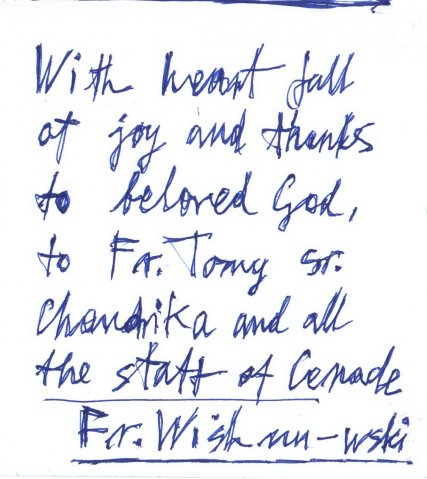 With heart full
of joy and thanks
to beloved God,
to Fr. Tomy sr.
Chandrika and all
the staff of Cenade
Fr. Wish nu-wski